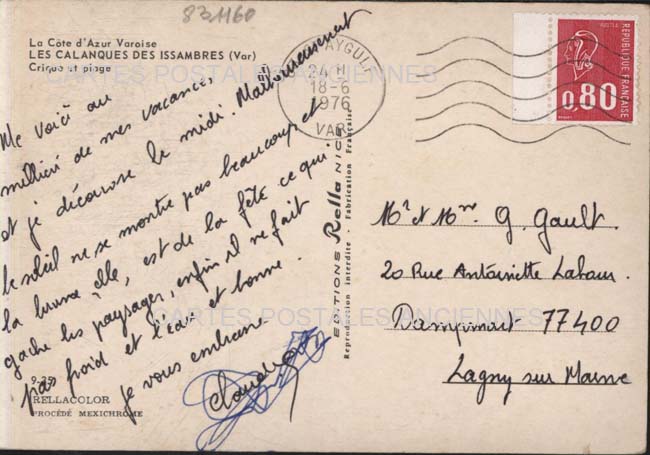 831160
La Côte d'Azur Varoise
LES CALANQUES DES ISSAMBRES (Var)
Crique et plage
CARTES POSTALES ANCIENNES
Me voici au
millieu de mes vacances,
et je découvre le midi. Malheureusement
le soleil ne se montre pas beaucoup et
la brume elle, est de la fête ce qui
gache les paysages, enfin il ne fait
pas froid et l'eau est bonne.
je vous embrasse
9-259
RELLACOLOR
PROCÉDÉ MEXICHROME
AYGULF
24 H
18-6
1976
VAR
EDITIONS Rella NICE
Reproduction interdite - Fabrication Française
REPUBLIQUE FRANÇAISE
POSTES
0,80
Mr et Mme G. Gault.
20 Rue Antoinette
Dampmart 77400
Lagny sur Marne
CARTES POSTALES ANCIENNES